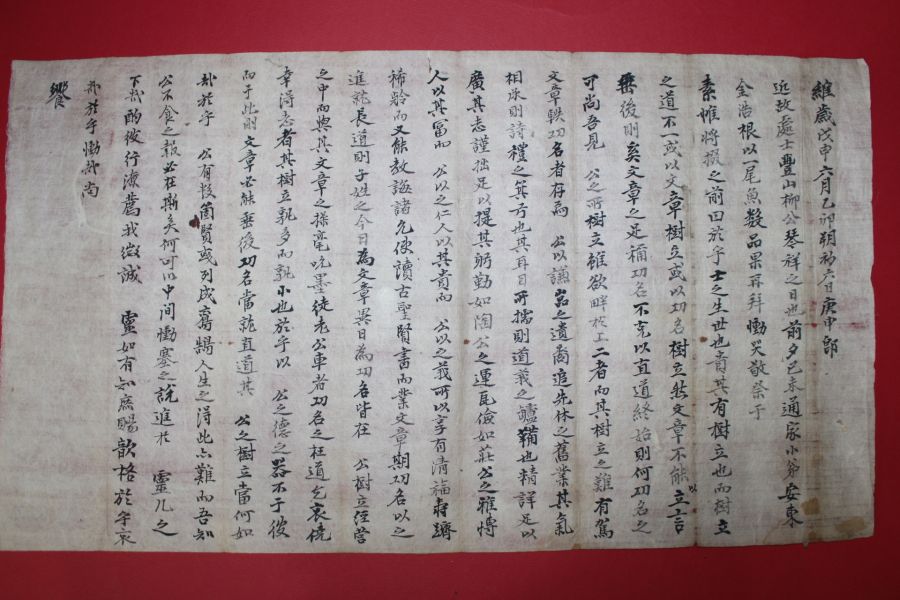 維歲戊申六月乙卯朔初六日庚申卽
近故處士豐山柳公琴祥之日也前夕己未通家小弟安東
金浩根以一尾魚數品果再拜慟哭敬祭于
素帷將撤之前曰於乎士之生世也貴其有樹立也而樹立
之道不一或以文章樹立或以功名樹立然文章不能以立言
垂後則奚文章之足稱功名不克以直道終始則何功名之
可尚吾見 公之所樹立雖欲畔於二者而其樹立之難有駕
文章軼功名者存焉 公以謙嵒之遺裔追先休之舊業其氣
相承則詩禮之其方也其耳目所擩則道義之 鞴也精詳足以
廣其志謹拙足以提其躬勤如陶公之運瓦儉如莊公之雅愽
人以其富而 公以之仁人以其貴而 公以之義所以享有清福壽躋
稀齡而又能敎誨諸兒俾讀古聖賢書而業文章期功名以之
進就長道則子姓之今日爲文章異日爲功名皆在 公樹立經營
之中而與其文章之操毫吮墨徒老公車者功名之枉道乞哀僥
幸得志者其樹立孰多而孰小也於乎以 公之德之器不于彼
而于此則文章必能垂後功名當就直道其 公之樹立當何如
哉於乎 公有投箇賢或列成喬鵠人生之得此亦難而吾知
公不食之報必在斯矣何可以中間慟塞之說進於 靈几之
下哉酌彼行潦薦我微誠 靈如有知庶賜歆格於乎哀
哉於乎慟哉尚
饗